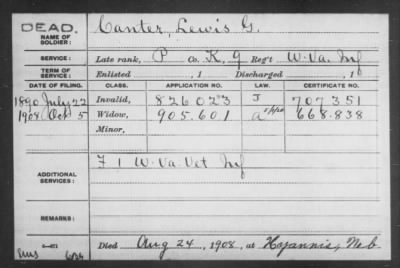 DEAD.
NAME OF SOLDIER: Canter, Lewis G.
SERVICE: Late rank, P Co. K, 9 Reg't W. Va. Inf
TERM OF SERVICE: Enlisted , 1 Discharged , 1
DATE OF FILING. CLASS. APPLICATION NO. LAW. CERTIFICATE NO.
1890 July 22 Invalid, 826023 J 707351
1908 Oct 5 Widow, 905.601 668.838
Minor,
ADDITIONAL SERVICES: F 1 W. Va. Vet Inf
REMARKS:
Died Aug 24, 1908, at Hyannis, Neb